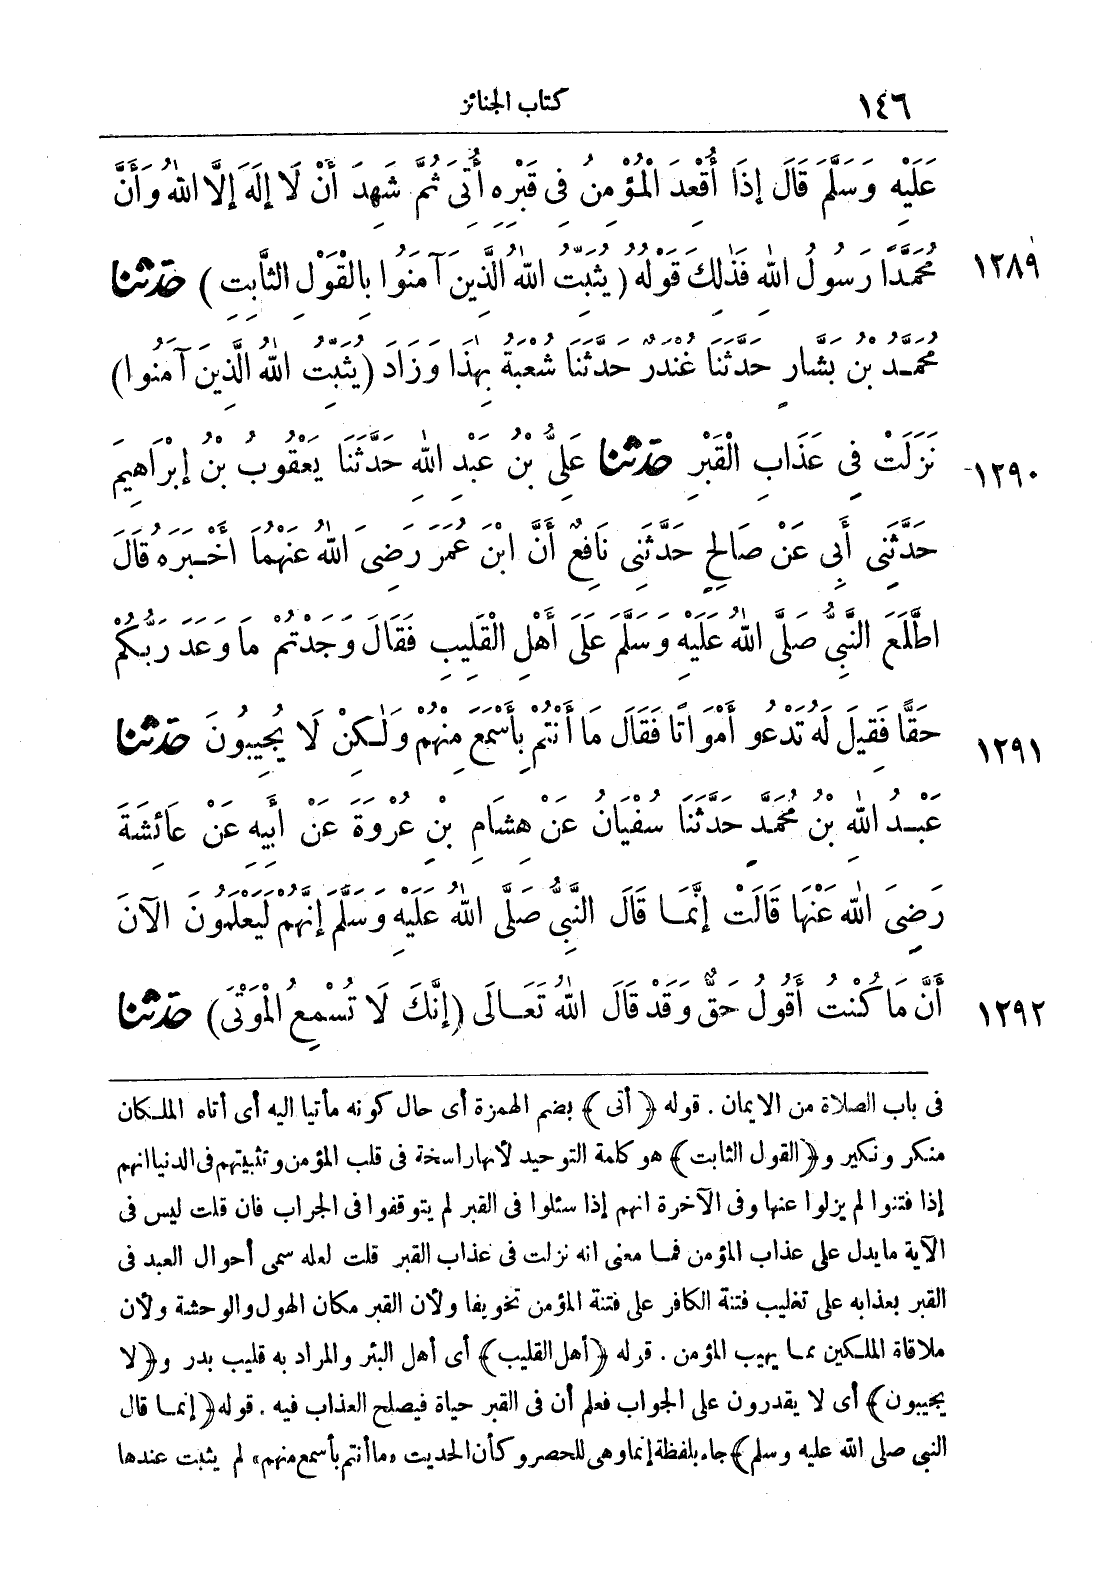 ١٤٦ كتاب الجنائز
عَلَيْهِ وَسَلَّمَ قَالَ إِذَا أُقْعِدَ الْمُؤْمِنُ فِى قَبْرِهِ أُتِىَ ثُمَّ شَهِدَ أَنْ لَا إِلَهَ إِلَّا اللهُ وَأَنَّ
١٢٨٩ مُحَمَّدًا رَسُولُ اللهِ فَذٰلِكَ قَوْلُهُ (يُثَبِّتُ اللهُ الَّذِينَ آمَنُوا بِالْقَوْلِ الثَّابِتِ) حَدَّثنا
مُحَمَّدُ بْنُ بَشَّارٍ حَدَّثَنَا غُنْدَرٌ حَدَّثَنَا شُعْبَةُ بِهٰذَا وَزَادَ (يُثَبِّتُ اللهُ الَّذِينَ آمَنُوا)
١٢٩٠ نَزَلَتْ فِى عَذَابِ الْقَبْرِ حَدَّثنا عَلِىُّ بْنُ عَبْدِ اللهِ حَدَّثَنَا يَعْقُوبُ بْنُ إِبْرَاهِيمَ
حَدَّثَنِى أَبِى عَنْ صَالِحٍ حَدَّثَنِى نَافِعٌ أَنَّ ابْنَ عُمَرَ رَضِىَ اللهُ عَنْهُمَا أَخْبَرَهُ قَالَ
اطَّلَعَ النَّبِىُّ صَلَّى اللهُ عَلَيْهِ وَسَلَّمَ عَلَى أَهْلِ الْقَلِيبِ فَقَالَ وَجَدْتُمْ مَا وَعَدَ رَبُّكُمْ
١٢٩١ حَقًّا فَقِيلَ لَهُ تَدْعُو أَمْوَاتًا فَقَالَ مَا أَنْتُمْ بِأَسْمَعَ مِنْهُمْ وَلٰكِنْ لَا يُجِيبُونَ حَدَّثنا
عَبْدُ اللهِ بْنُ مُحَمَّدٍ حَدَّثَنَا سُفْيَانُ عَنْ هِشَامِ بْنِ عُرْوَةَ عَنْ أَبِيهِ عَنْ عَائِشَةَ
رَضِىَ اللهُ عَنْهَا قَالَتْ إِنَّمَا قَالَ النَّبِىُّ صَلَّى اللهُ عَلَيْهِ وَسَلَّمَ إِنَّهُمْ لَيَعْلَمُونَ الآنَ
١٢٩٢ أَنَّ مَا كُنْتُ أَقُولُ حَقٌّ وَقَدْ قَالَ اللهُ تَعَالَى (إِنَّكَ لَا تُسْمِعُ الْمَوْتَى) حَدَّثنا
فى باب الصلاة من الايمان . قوله ﴿أتى﴾ بضم الهمزة أى حال كونه مأتيا اليه أى أتاه الملكان
منكر ونكير و﴿القول الثابت﴾ هو كلمة التوحيد لأنها راسخة فى قلب المؤمن وتثبيتهم فى الدنيا انهم
إذا فتنوا لم يزلوا عنها وفى الآخرة انهم إذا سئلوا فى القبر لم يتوقفوا فى الجراب فان قلت ليس فى
الآية مايدل على عذاب المؤمن فما معنى انه نزلت فى عذاب القبر قلت لعله سمى أحوال العبد فى
القبر بعذابه على تغليب فتنة الكافر على فتنة المؤمن تخويفا ولأن القبر مكان الهول والوحشة ولأن
ملاقاة الملكين مما يهيب المؤمن . قوله ﴿أهل القليب﴾ أى أهل البئر والمراد به قليب بدر و﴿لا
يجيبون﴾ أى لا يقدرون على الجواب فعلم أن فى القبر حياة فيصلح العذاب فيه . قوله ﴿إنما قال
النبى صلى الله عليه وسلم﴾ جاء بلفظة إنما وهى للحصر وكأن الحديث «ما أنتم بأسمع منهم» لم يثبت عندها